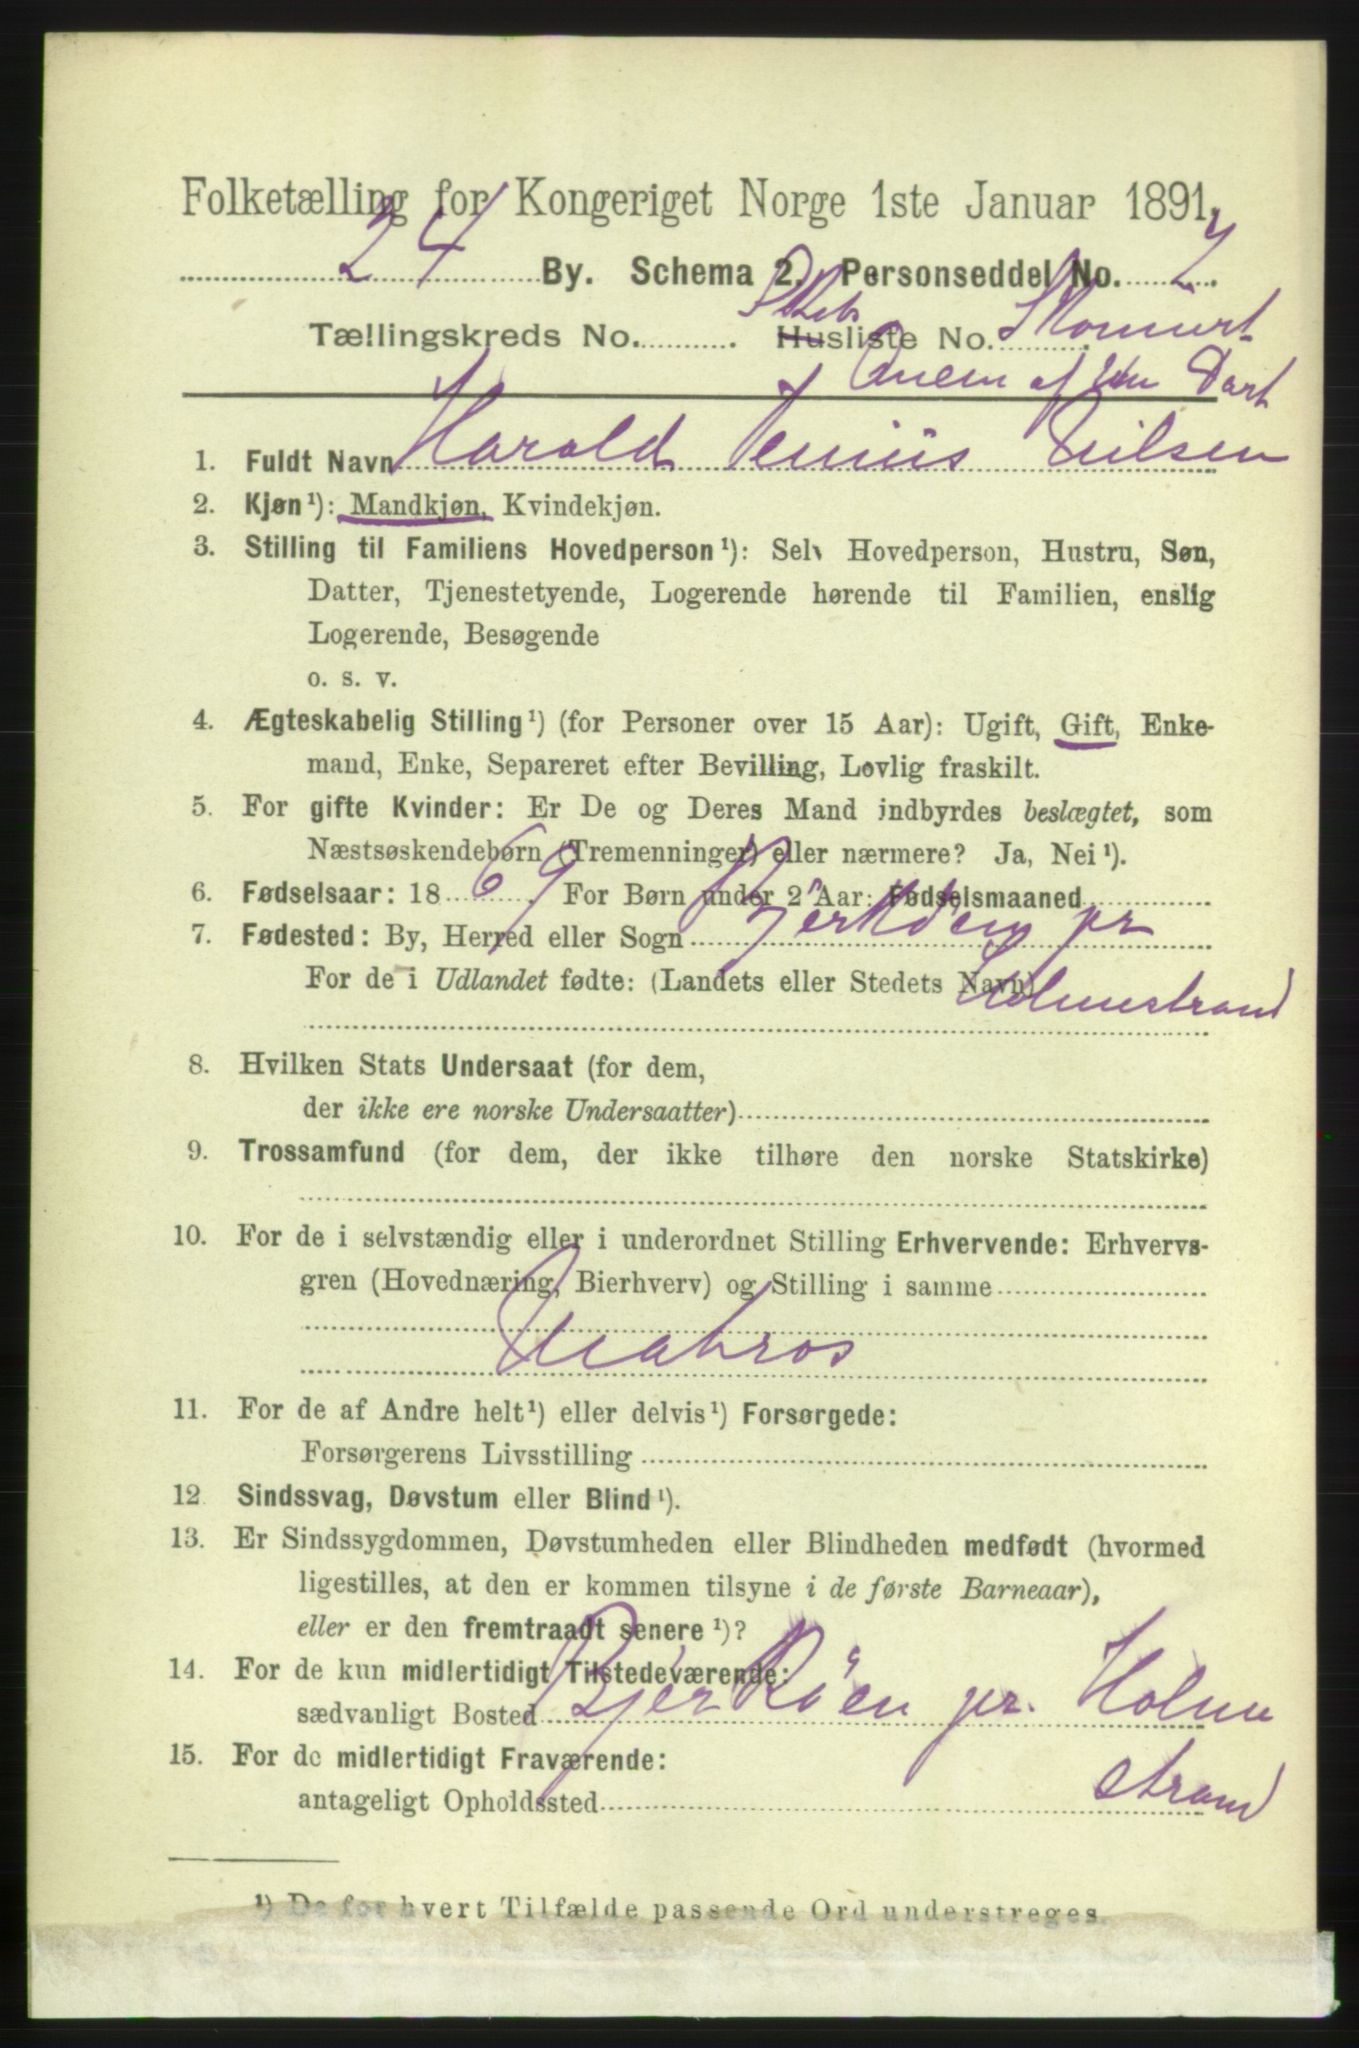 Folketælling for Kongeriget Norge 1ste Januar 1891.
24 By. Schema 2. Personseddel No. 7.
Tællingskreds No. Husliste No.
Skibs
1. Fuldt Navn Harold Nilsen
2. Kjøn¹): Mandkjøn, Kvindekjøn.
3. Stilling til Familiens Hovedperson¹): Selv Hovedperson, Hustru, Søn,
Datter, Tjenestetyende, Logerende hørende til Familien, enslig
Logerende, Besøgende
o. s. v.
4. Ægteskabelig Stilling¹) (for Personer over 15 Aar): Ugift, Gift, Enke-
mand, Enke, Separeret efter Bevilling, Lovlig fraskilt.
5. For gifte Kvinder: Er De og Deres Mand indbyrdes beslægtet, som
Næstsøskendebørn (Tremenninger) eller nærmere? Ja, Nei¹).
6. Fødselsaar: 1869. For Børn under 2 Aar: Fødselsmaaned
7. Fødested: By, Herred eller Sogn Bjerköen pr
For de i Udlandet fødte: (Landets eller Stedets Navn) Holmestrand
8. Hvilken Stats Undersaat (for dem,
der ikke ere norske Undersaatter)
9. Trossamfund (for dem, der ikke tilhøre den norske Statskirke)
10. For de i selvstændig eller i underordnet Stilling Erhvervende: Erhvervs-
gren (Hovednæring, Bierhverv) og Stilling i samme
Matros
11. For de af Andre helt¹) eller delvis¹) Forsørgede:
Forsørgerens Livsstilling
12. Sindssvag, Døvstum eller Blind¹).
13. Er Sindssygdommen, Døvstumheden eller Blindheden medfødt (hvormed
ligestilles, at den er kommen tilsyne i de første Barneaar),
eller er den fremtraadt senere¹)?
14. For de kun midlertidigt Tilstedeværende:
sædvanligt Bosted Bjerköen pr. Holme
15. For de midlertidigt Fraværende:
strand
antageligt Opholdssted
¹) De for hvert Tilfælde passende Ord understreges.